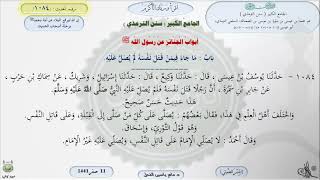 الجامع الكبير ( سنن الترمذي )
أبواب الجنائز عن رسول الله ﷺ
باب : ما جاء فيمن قتل نفسه لم يصل عليه
١٠٨٤ - حدثنا يوسف بن عيسى ، قال : حدثنا وكيع ، قال : حدثنا إسرائيل ، وشريك ، عن سماك بن حرب ،
عن جابر بن سمرة ، أن رجلا قتل نفسه فلم يصل عليه النبي صلى الله عليه وسلم .
واختلف أهل العلم في هذا ، فقال بعضهم : يصلى على كل من صلى إلى القبلة ، وعلى قاتل النفس ،
وهو قول الثوري ، وإسحاق .
وقال أحمد : لا يصلي الإمام على قاتل النفس ، ويصلي عليه غير الإمام .